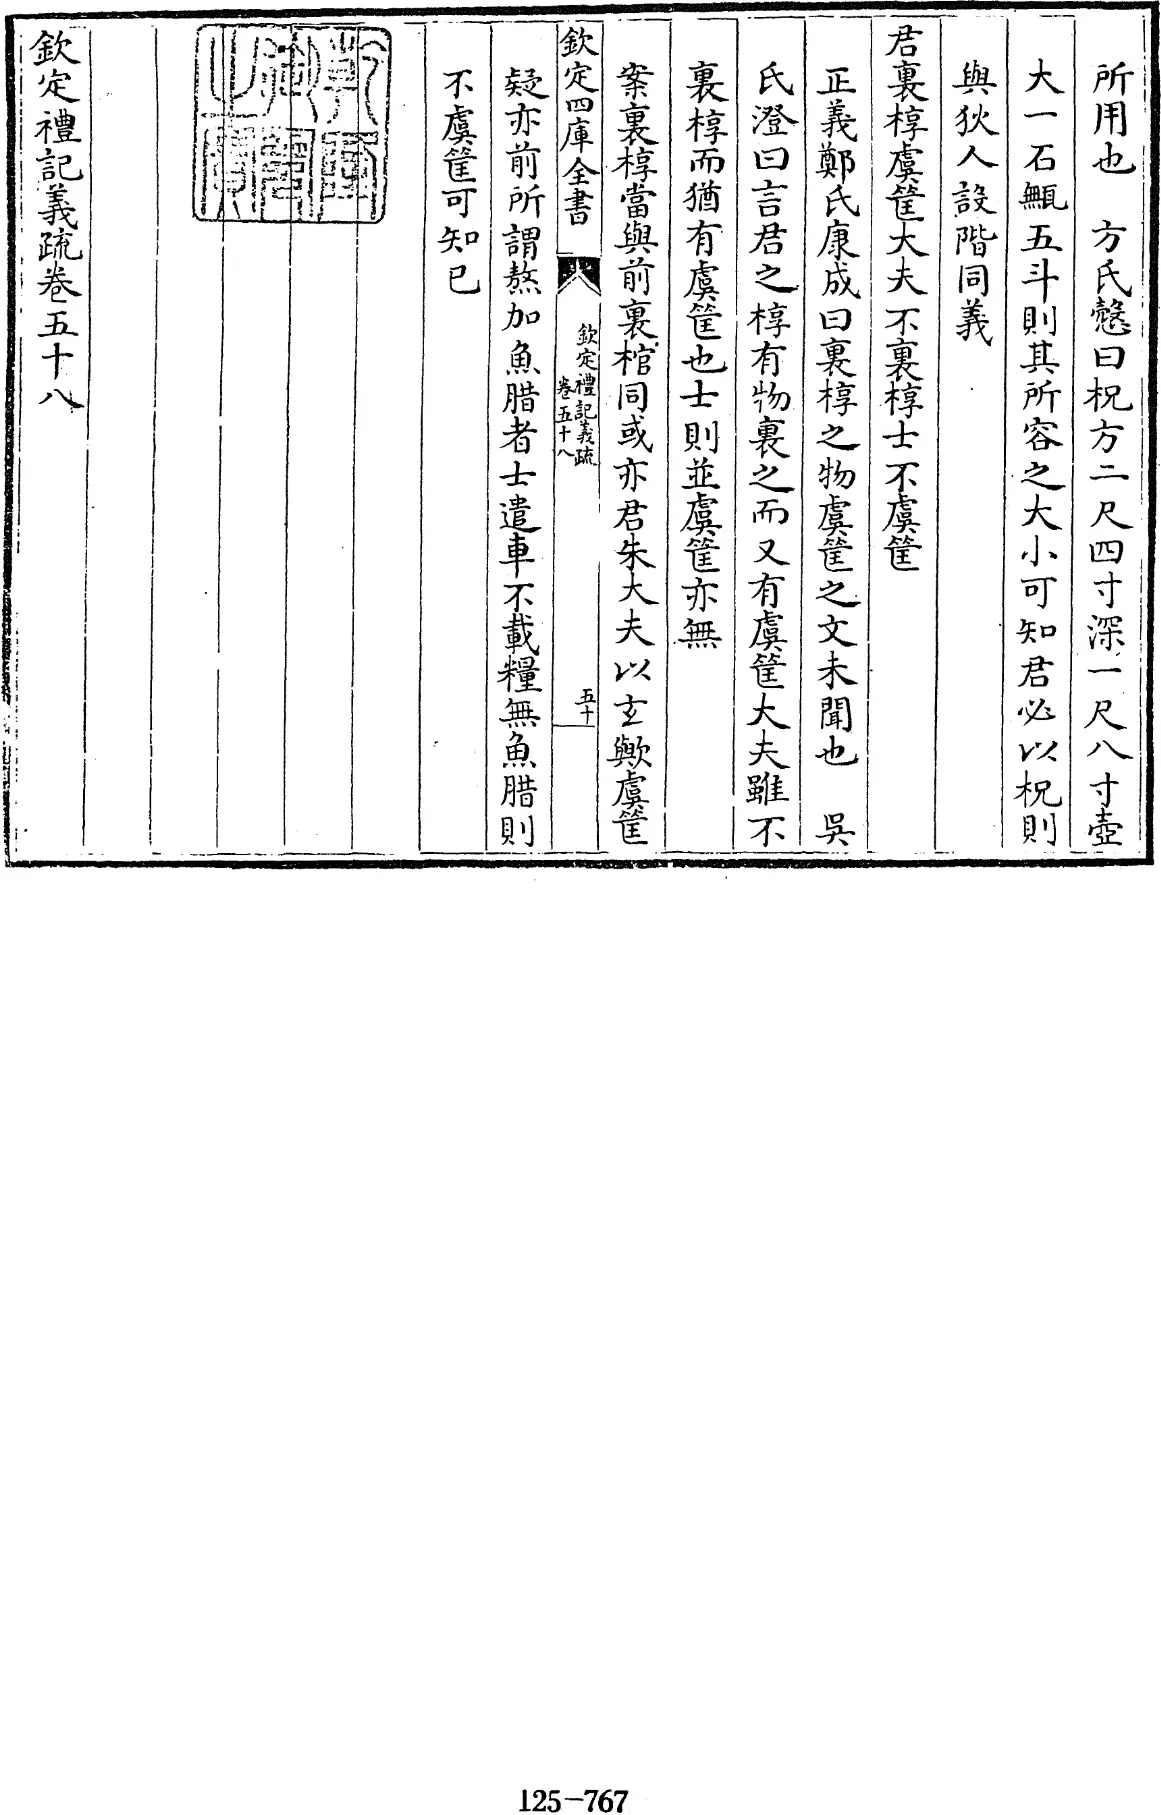 所用也　方氏慤曰柷方二尺四寸深一尺八寸壺
大一石甒五斗則其所容之大小可知君必以柷則
與狄人設階同義
君裏椁虞筐大夫不裏椁士不虞筐
正義鄭氏康成曰裏椁之物虞筐之文未聞也　吳
氏澄曰言君之椁有物裏之而又有虞筐大夫雖不
裏椁而猶有虞筐也士則並虞筐亦無
案裏椁當與前裏棺同或亦君朱大夫以玄歟虞筐
欽定四庫全書
欽定禮記義疏
卷五十八
五十
疑亦前所謂熬加魚腊者士遣車不載糧無魚腊則
不虞筐可知已
乾隆御覽之寶
欽定禮記義疏卷五十八
125-767